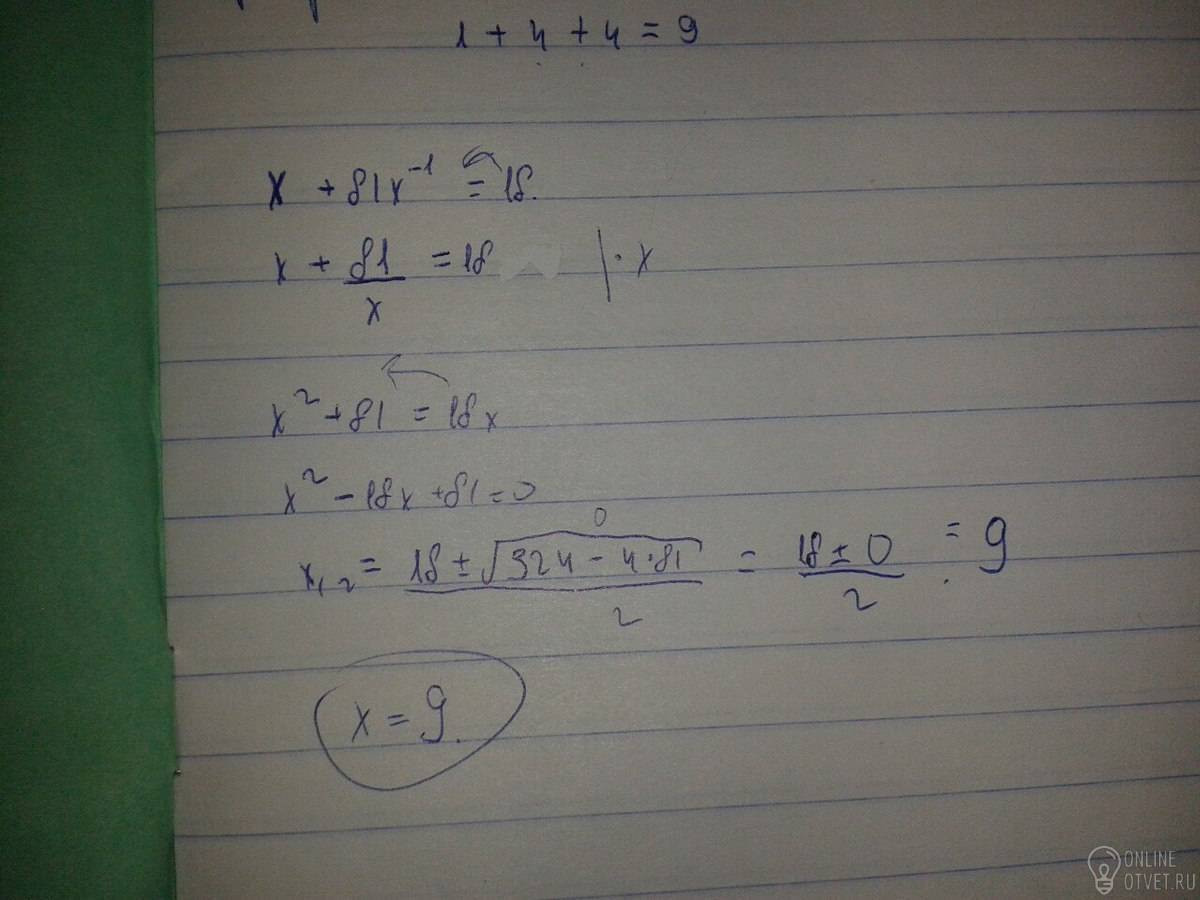 1 + 4 + 4 = 9
x + 81x⁻¹ = 18.
x + 81/x = 18 | · x
x² + 81 = 18x
x² - 18x + 81 = 0
0
x₁,₂ = (18 ± √(324 - 4·81))/2 = (18 ± 0)/2 = 9
x = 9.
ONLINE
OTVET.RU